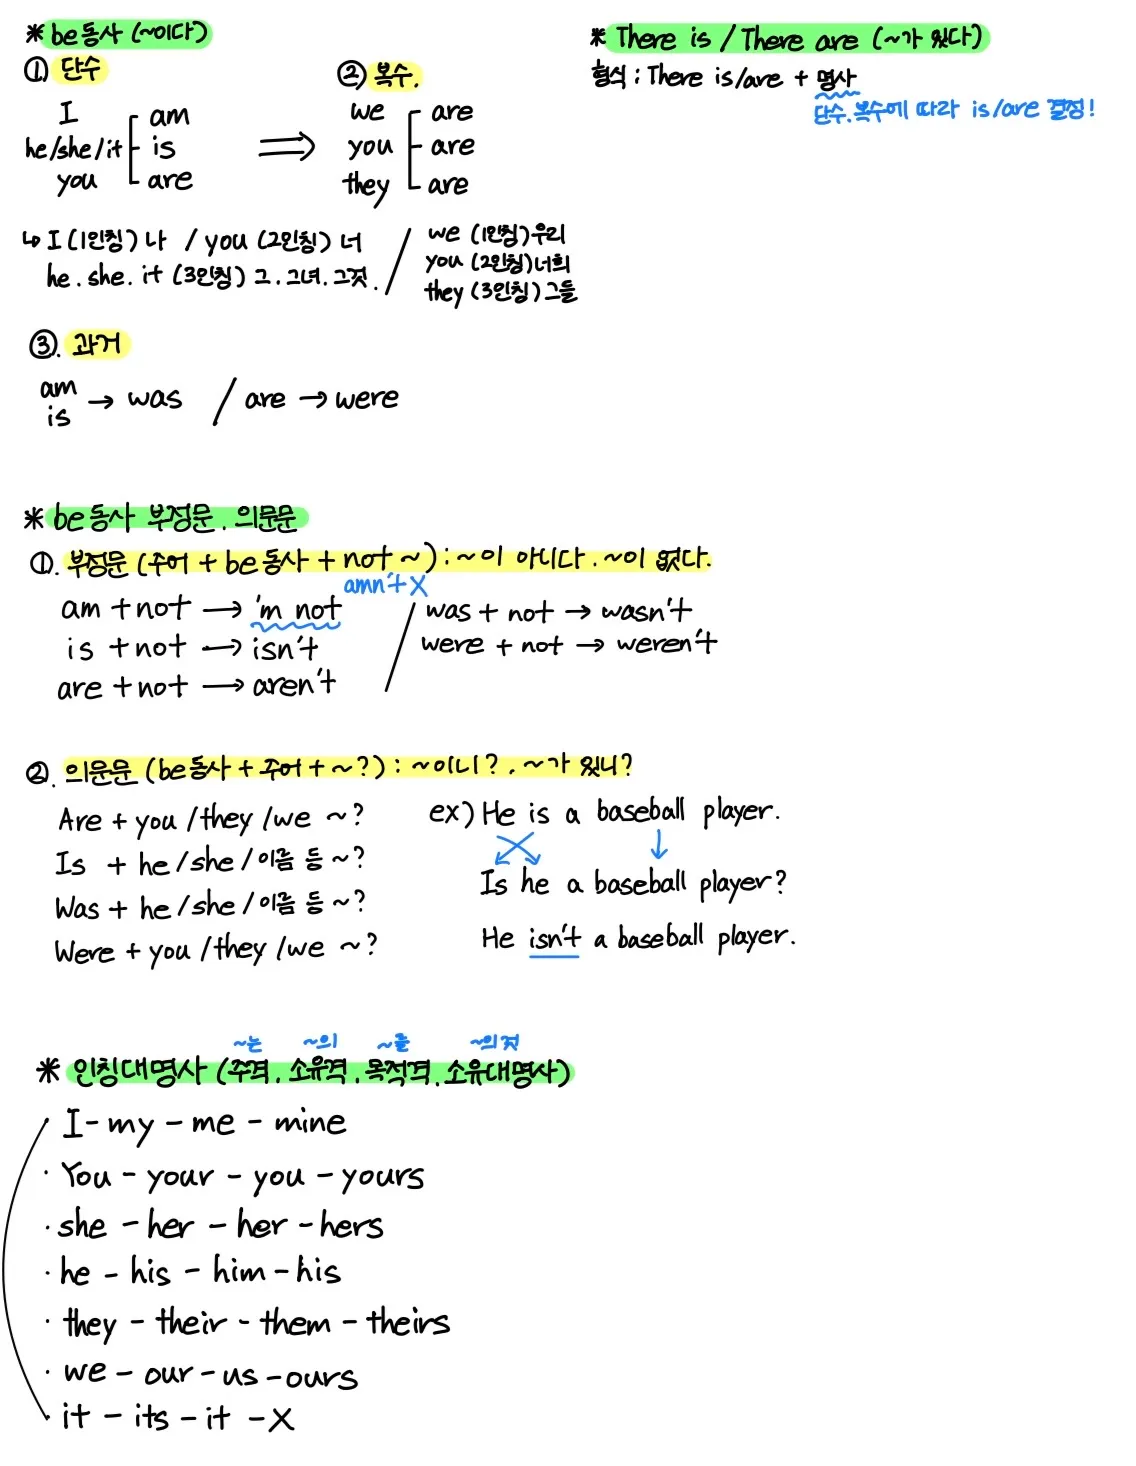 * be동사 (~이다)
① 단수
I am
he/she/it is
you are
⇒
② 복수.
we are
you are
they are
↳ I (1인칭) 나 / you (2인칭) 너
he. she. it (3인칭) 그. 그녀. 그것. /
we (1인칭) 우리
you (2인칭) 너희
they (3인칭) 그들
③. 과거
am
is → was / are → were
* be동사 부정문. 의문문
①. 부정문 (주어 + be동사 + not ~) : ~이 아니다. ~이 없다.
amn't X
am + not → 'm not
is + not → isn't
are + not → aren't
/ was + not → wasn't
were + not → weren't
②. 의문문 (be동사 + 주어 + ~?) : ~이니?. ~가 있니?
Are + you /they /we ~?
Is + he /she /이름 등 ~?
Was + he /she /이름 등 ~?
Were + you /they /we ~?
ex) He is a baseball player.
Is he a baseball player?
He isn't a baseball player.
~는 ~의 ~를 ~의 것
* 인칭대명사 (주격. 소유격. 목적격. 소유대명사)
I - my - me - mine
· You - your - you - yours
· she - her - her - hers
· he - his - him - his
· they - their - them - theirs
· we - our - us - ours
it - its - it - X
* There is / There are (~가 있다)
형식 : There is/are + 명사
단수. 복수에 따라 is/are 결정!